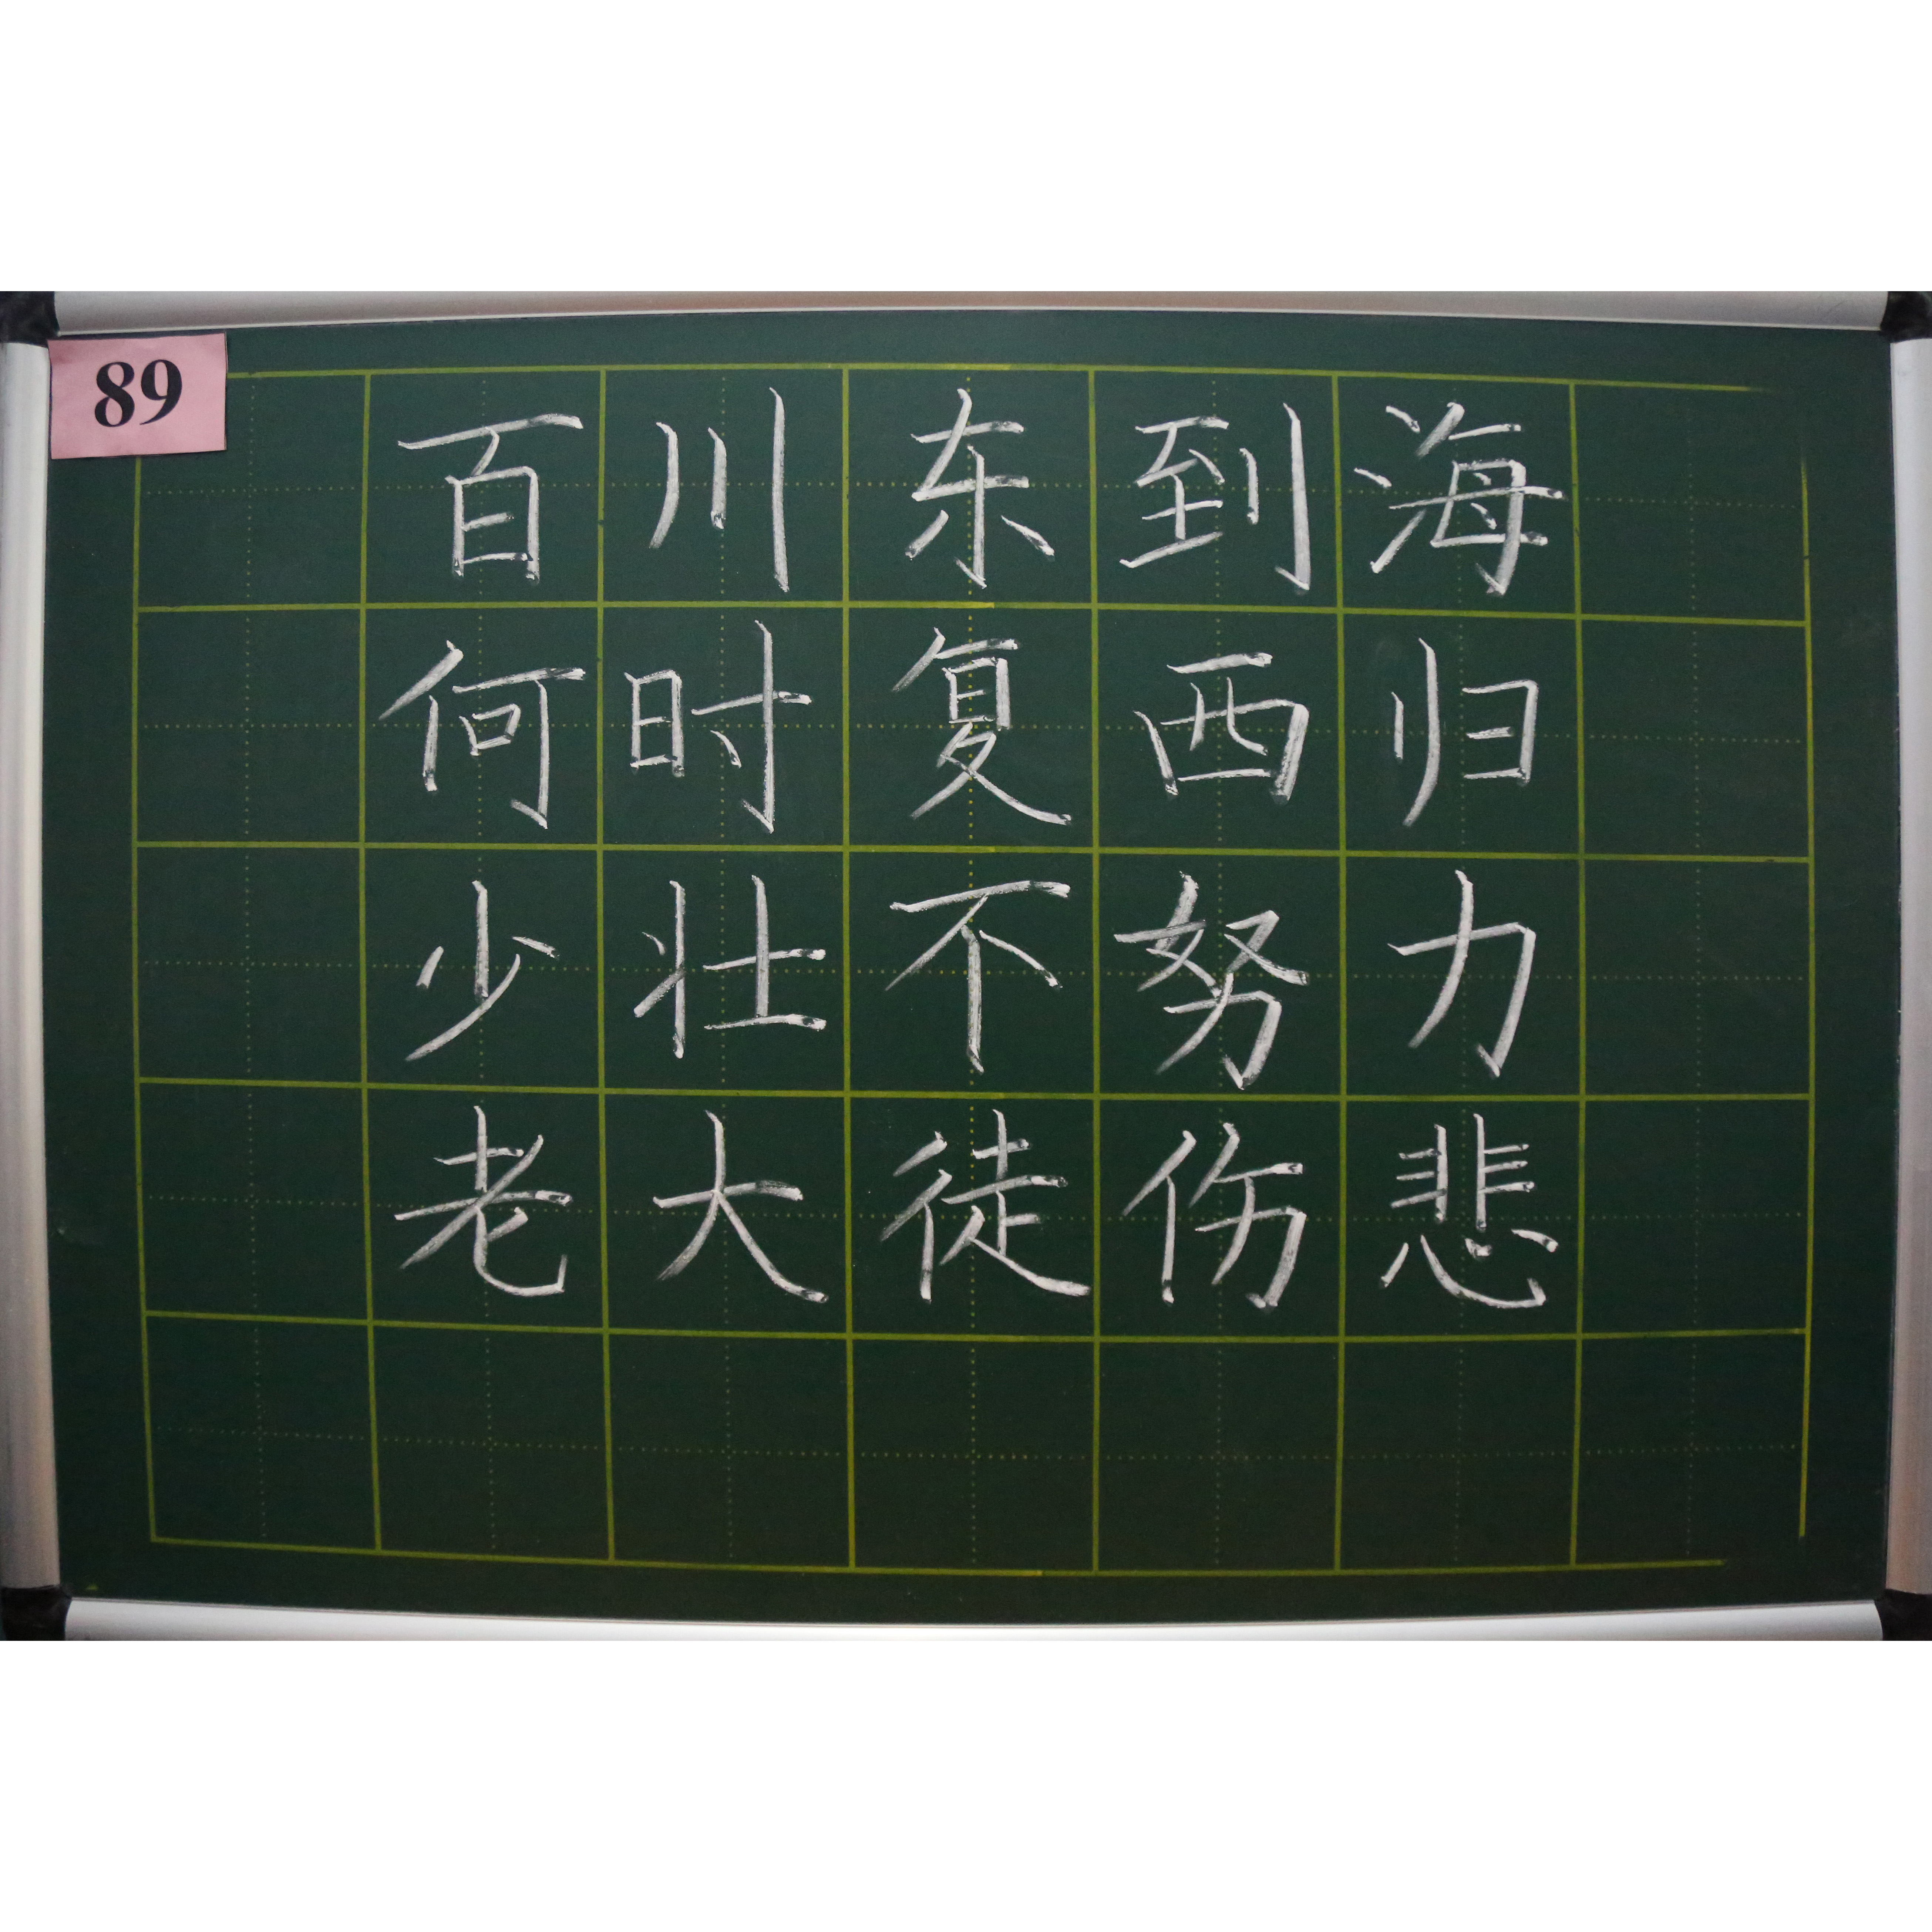 89
百川东到海
何时复西归
少壮不努力
老大徒伤悲